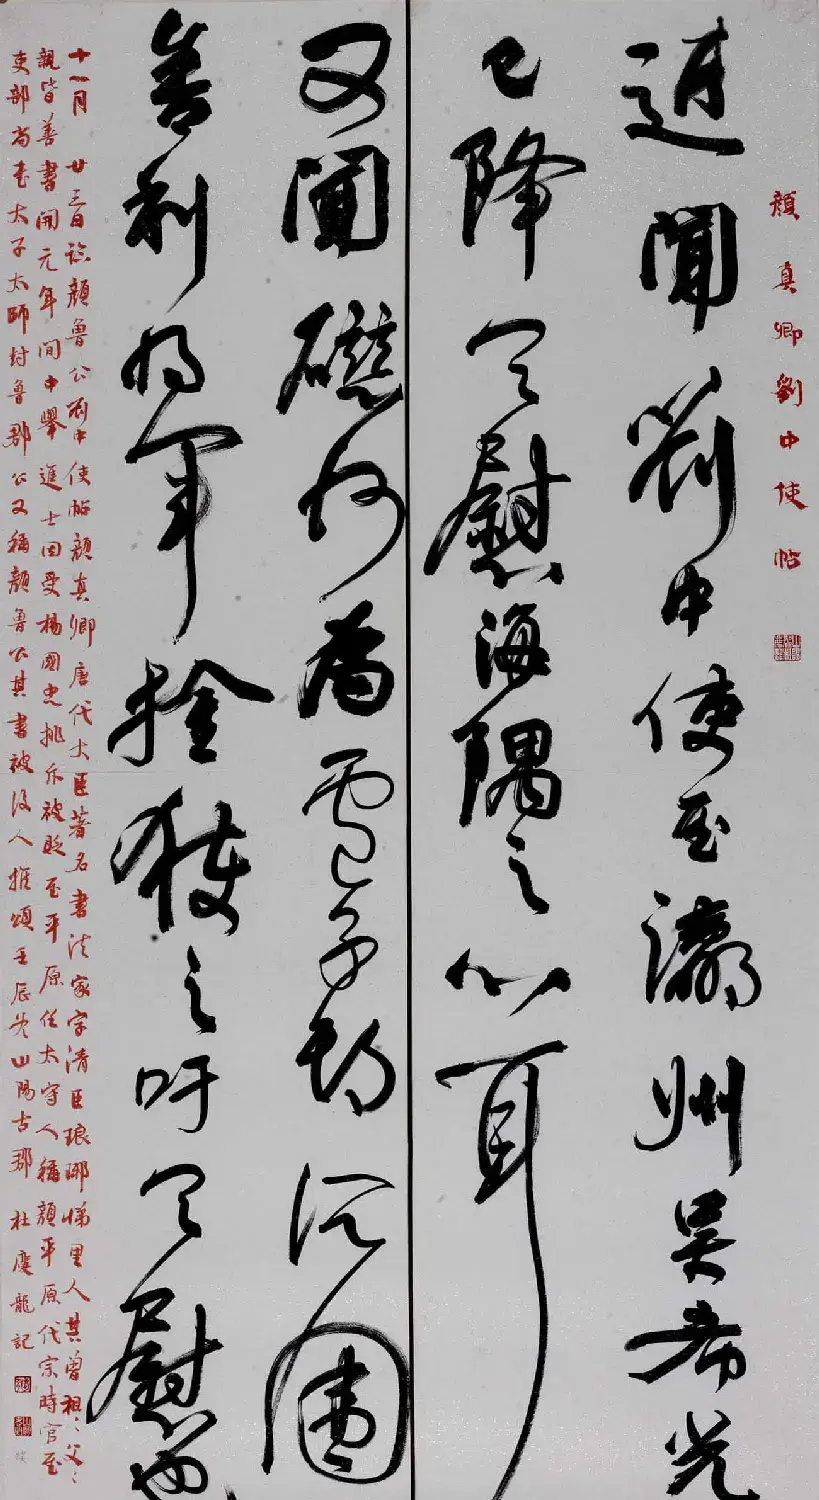 顏真卿劉中使帖
近聞劉中使至瀛州吳希光
已降足慰海隅之心耳
又聞礠州為盧子期所圍
舍利將軍擒獲之吁足慰也
十一月廿三日臨顏魯公劉中使帖顏真卿唐代大臣著名書法家字清臣琅琊悌里人其曾祖、父、
親皆善書開元年間中舉進士因受楊國忠排斥被貶至平原任太守人稱顏平原代宗時官至
吏部尚書太子太師封魯郡公又稱顏魯公其書被後人推頌壬辰冬山陽古郡杜慶龍記